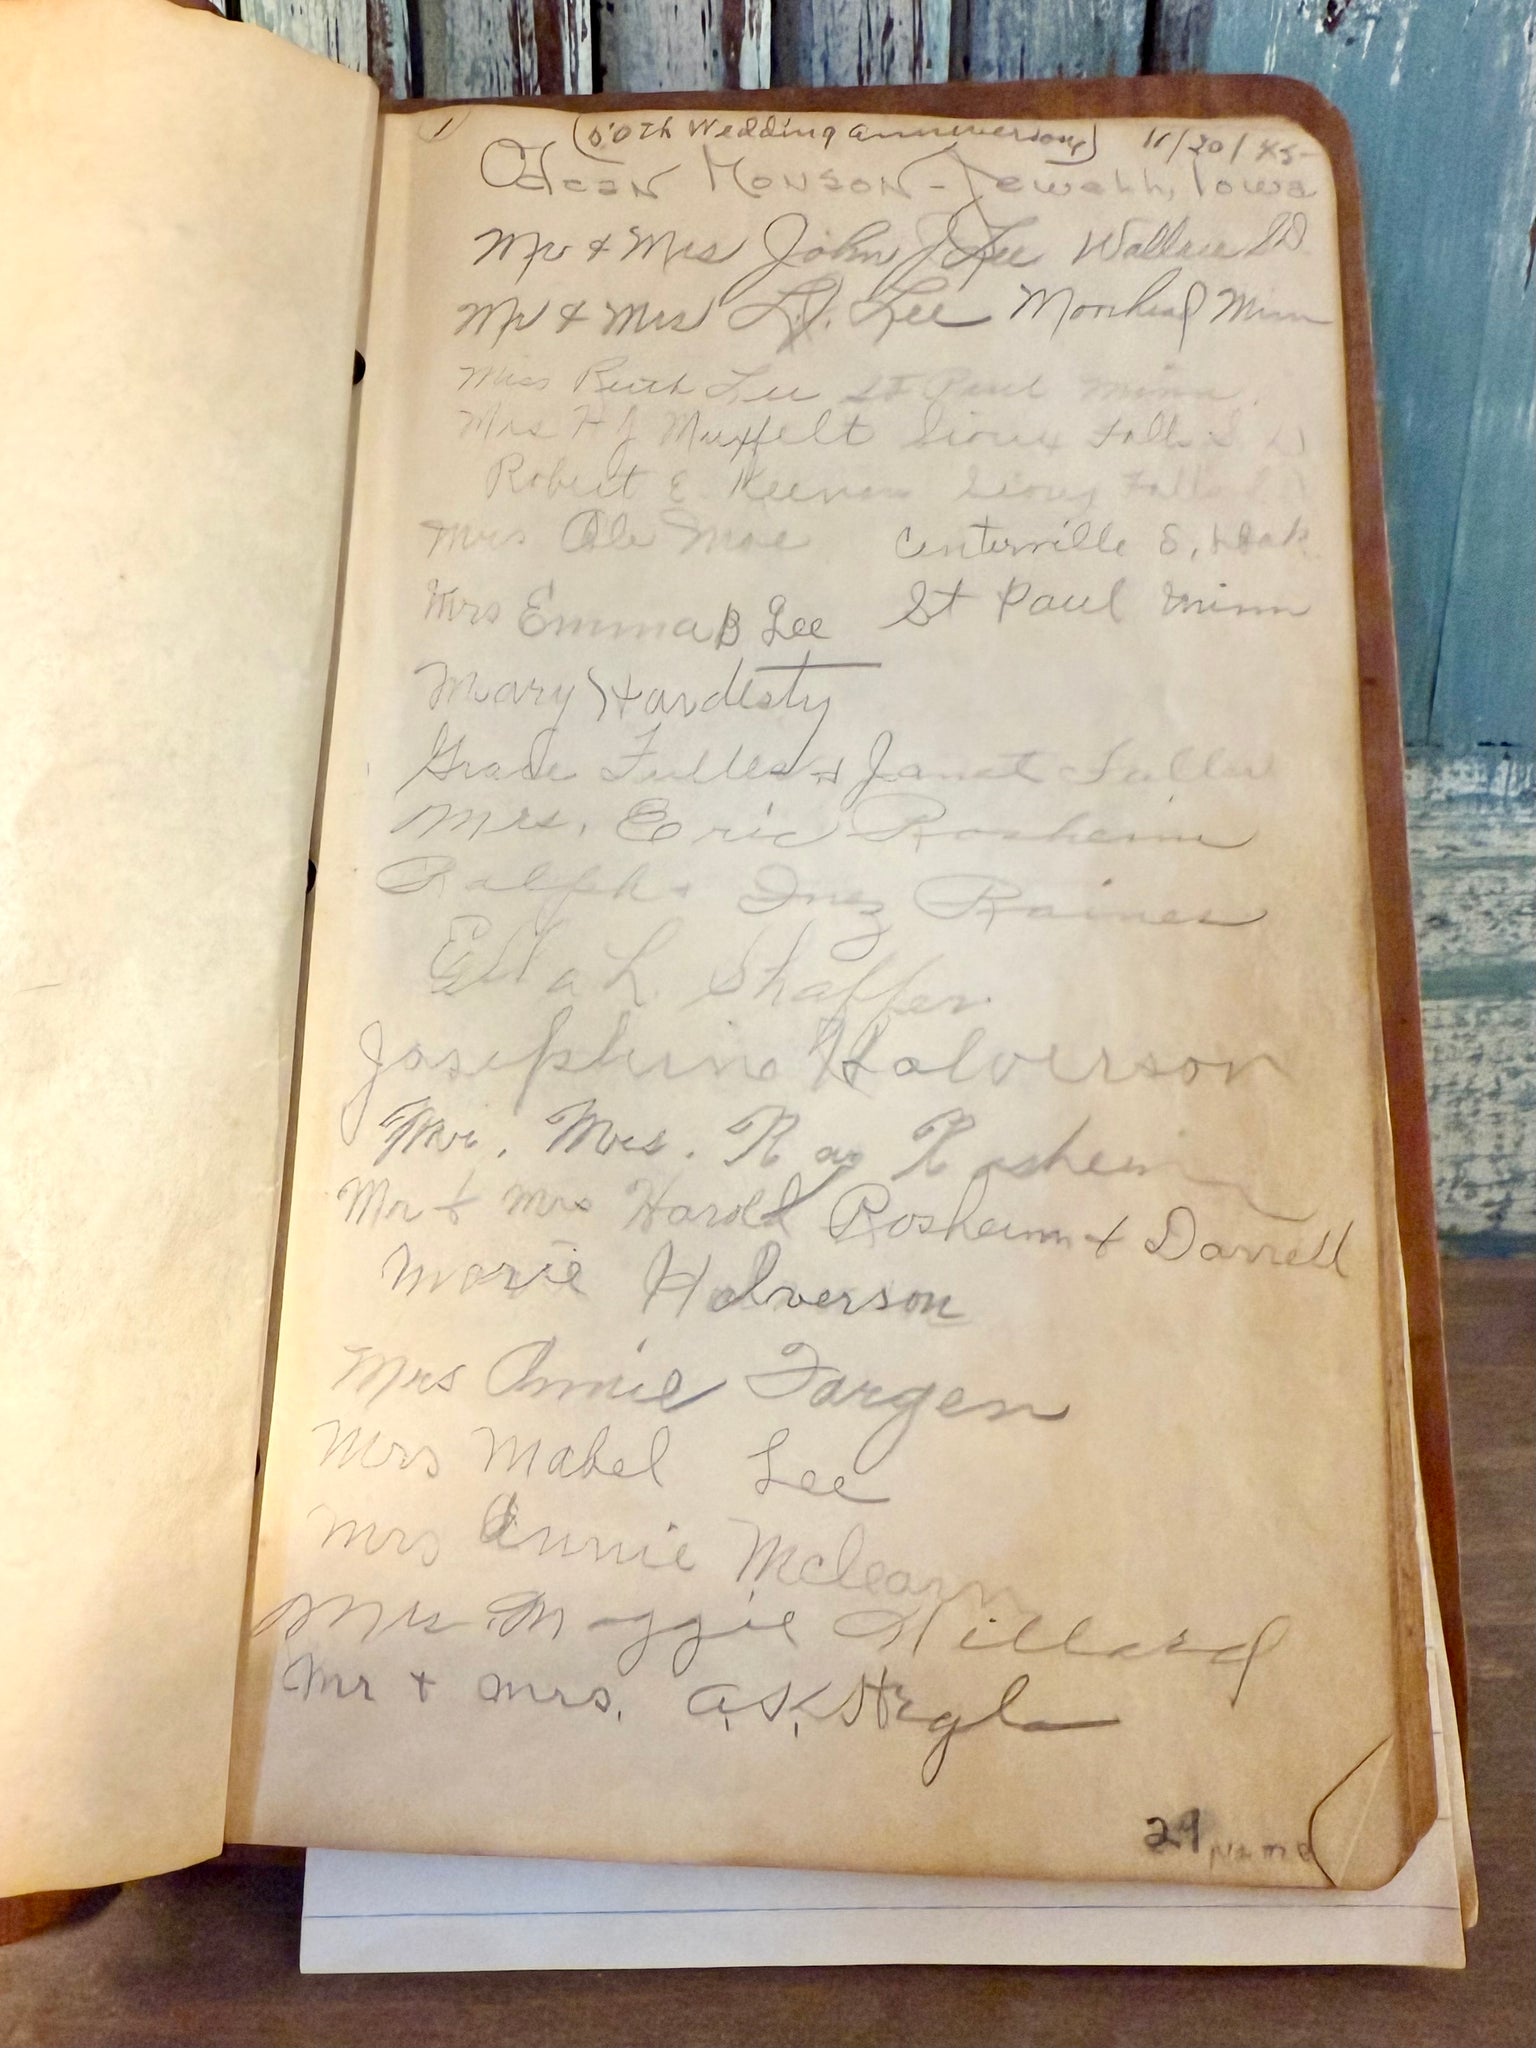 1 (50th Wedding anniversary) 11/20/45
Odean Monson - Jewell, Iowa
Mr & Mrs John J Lee Wallace S.D.
Mr & Mrs L.J. Lee Moorhead Minn
Miss Ruth Lee St Paul Minn.
Mrs H J Muxfelt Sioux Falls S. D
Robert E. Keenan Sioux Falls S.D
Mrs Ole Moe Centerville S, Dak.
Mrs Emma B Lee St Paul Minn
Mary Hardesty
Grace Fuller & Janet Fuller
Mrs. Eric Rosheim
Ralph & Inez Raines
Ella L. Shaffer
Josephine Halverson
Mr. Mrs. Ray Rosheim
Mr & Mrs Harold Rosheim & Darrell
Marie Halverson
Mrs Annie Fargen
Mrs Mabel Lee
Mrs Annie McLearn
Mrs. Maggie Willard
Mr & Mrs. A.K. Hegla
29 name